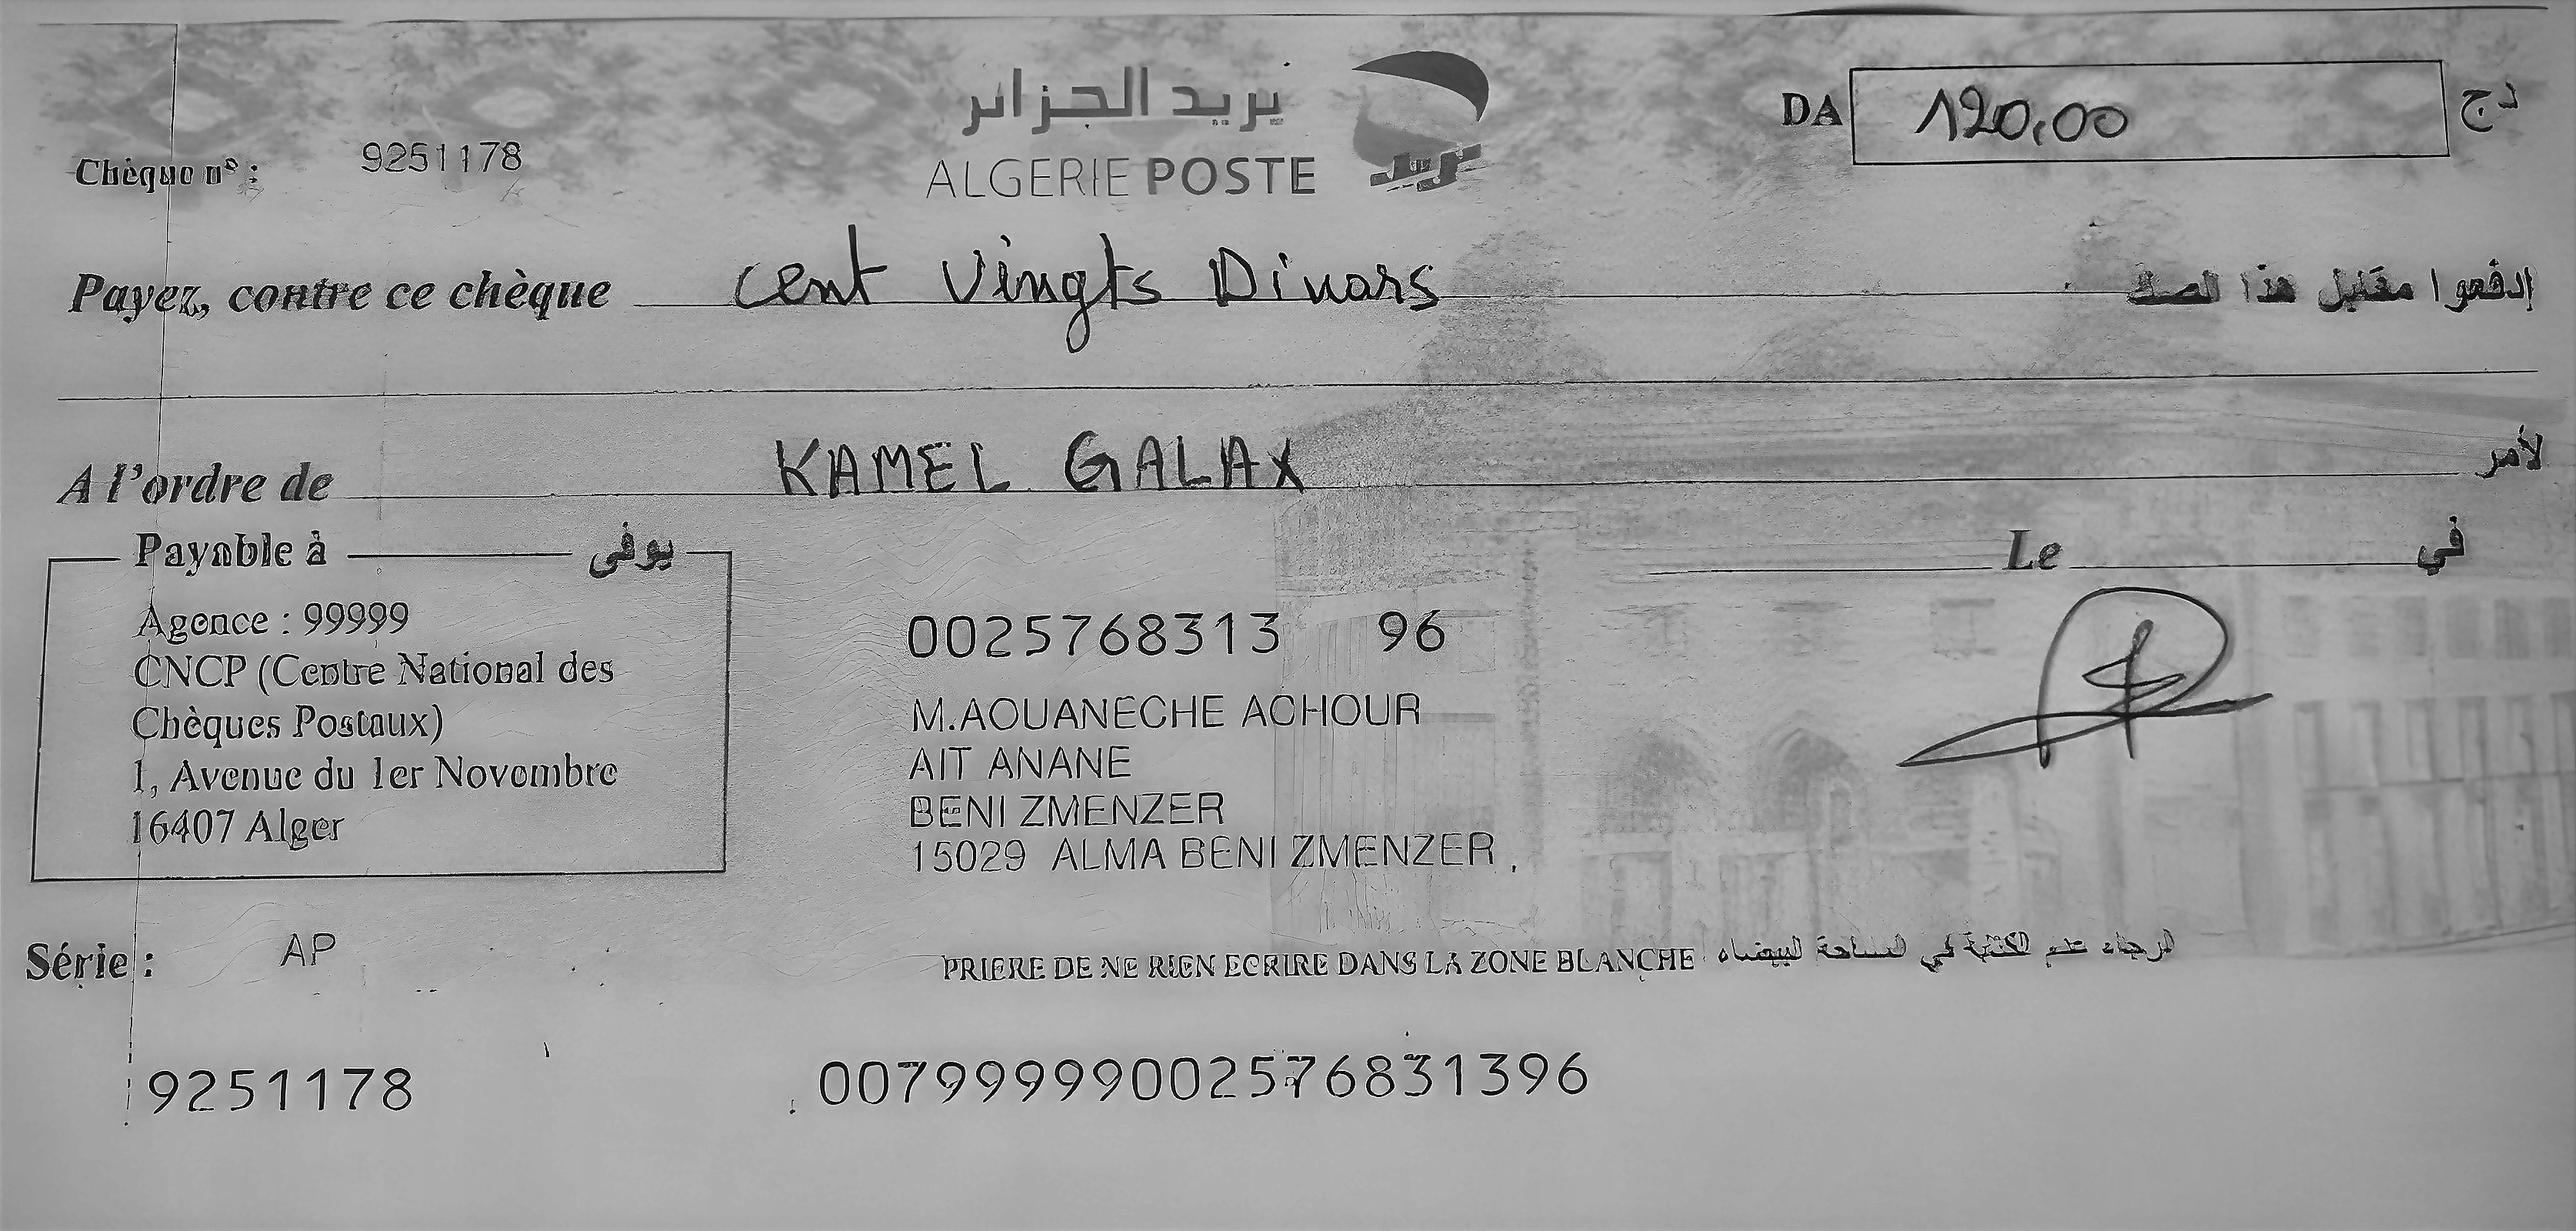 بريد الجزائر
ALGERIE POSTE
بريد
DA 120,00 دج
Chèque n° : 9251178
Payez, contre ce chèque Cent Vingts Dinars إدفعوا مقابل هذا الصك
A l'ordre de KAMEL GALAX لأمر
Payable à يوفى
Le في
Agence : 99999
CNCP (Centre National des
Chèques Postaux)
1, Avenue du 1er Novembre
16407 Alger
0025768313 96
M.AOUANECHE ACHOUR
AIT ANANE
BENI ZMENZER
15029 ALMA BENI ZMENZER
Série : AP
PRIERE DE NE RIEN ECRIRE DANS LA ZONE BLANCHE الرجاء عدم الكتابة في المساحة البيضاء
9251178 00799999002576831396